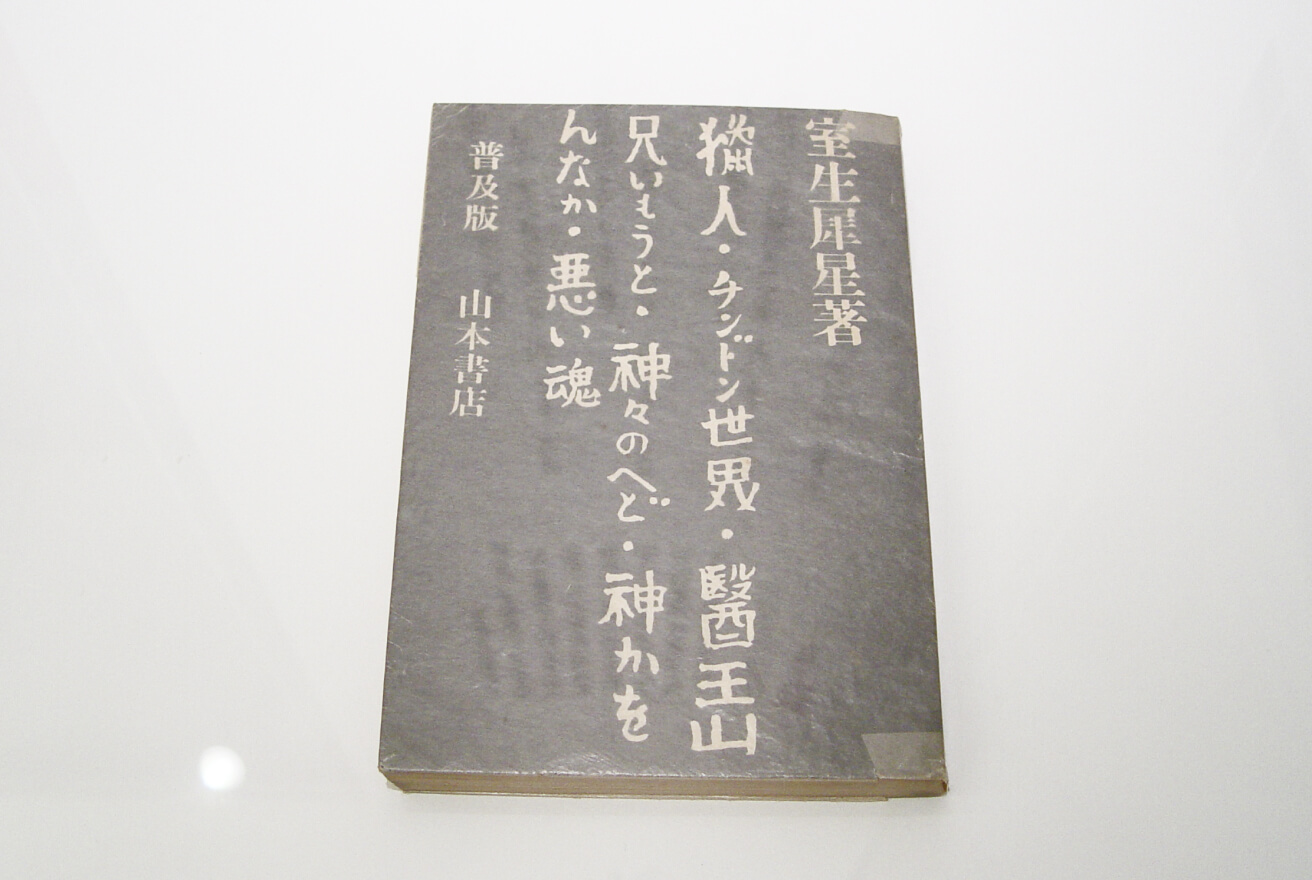 室生犀星著
獵人・チンドン世界・醫王山
兄いもうと・神々のへど・神かを
んなか・悪い魂
普及版　山本書店